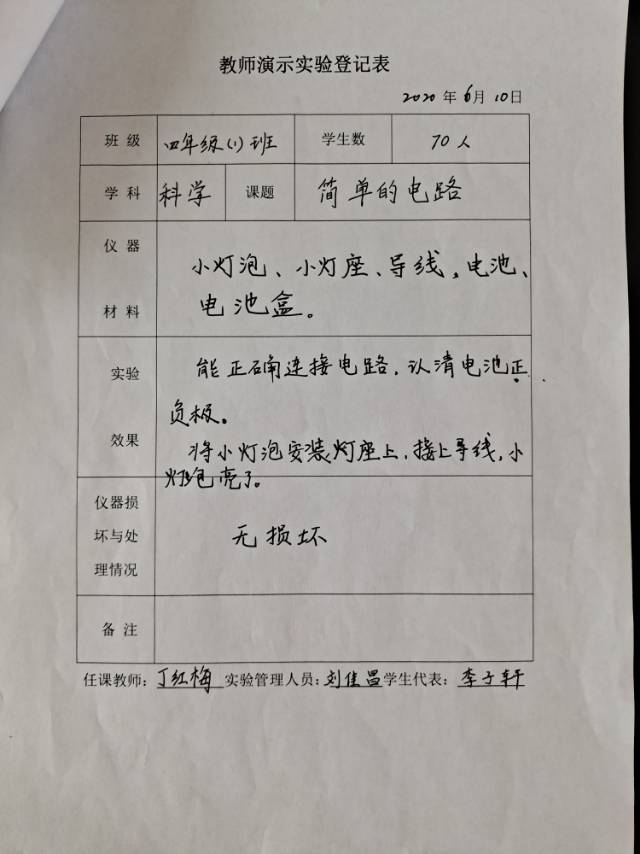 教师演示实验登记表
2020年6月10日
班级 四年级(1)班 学生数 70人
学科 科学 课题 简单的电路
仪器 小灯泡、小灯座、导线。电池、
材料 电池盒。
实验 能正确连接电路,认清电池正
负极。
效果 将小灯泡安装灯座上,接上导线,小
灯泡亮了。
仪器损
坏与处 无损坏
理情况
备注
任课教师:丁红梅 实验管理人员:刘佳昌 学生代表:李子轩